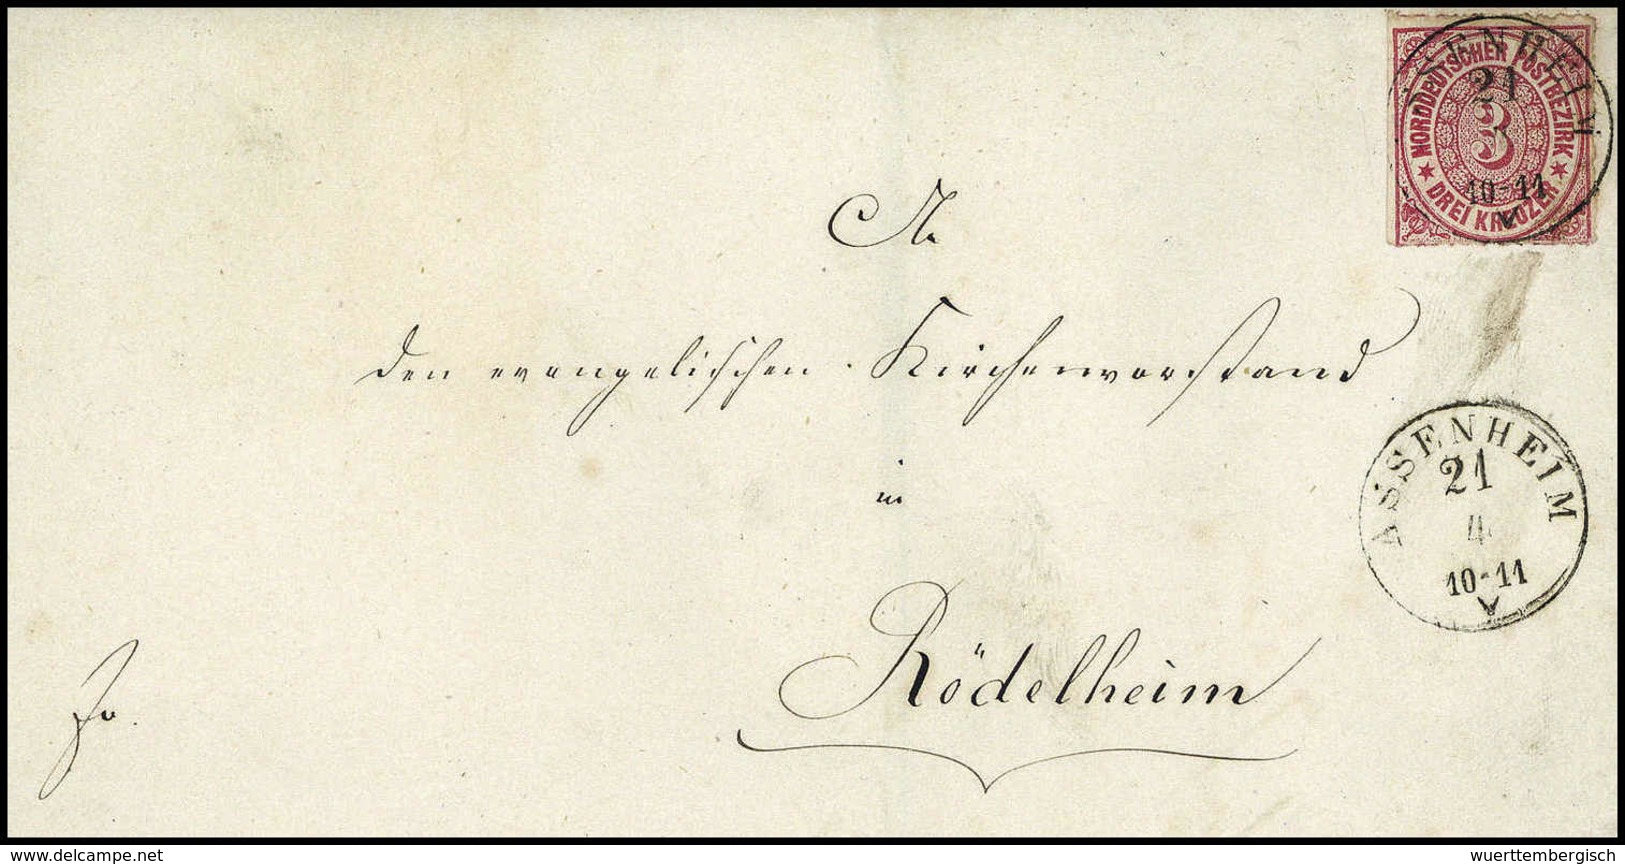 NORDDEUTSCHER POSTBEZIRK
3
DREI KREUZER
21
10-11
V
An
den evangelischen Kirchenvorstand
in
Rödelheim
fr.
ASSENHEIM
21
4
10-11
V
delcampe.net
wuerttembergisch